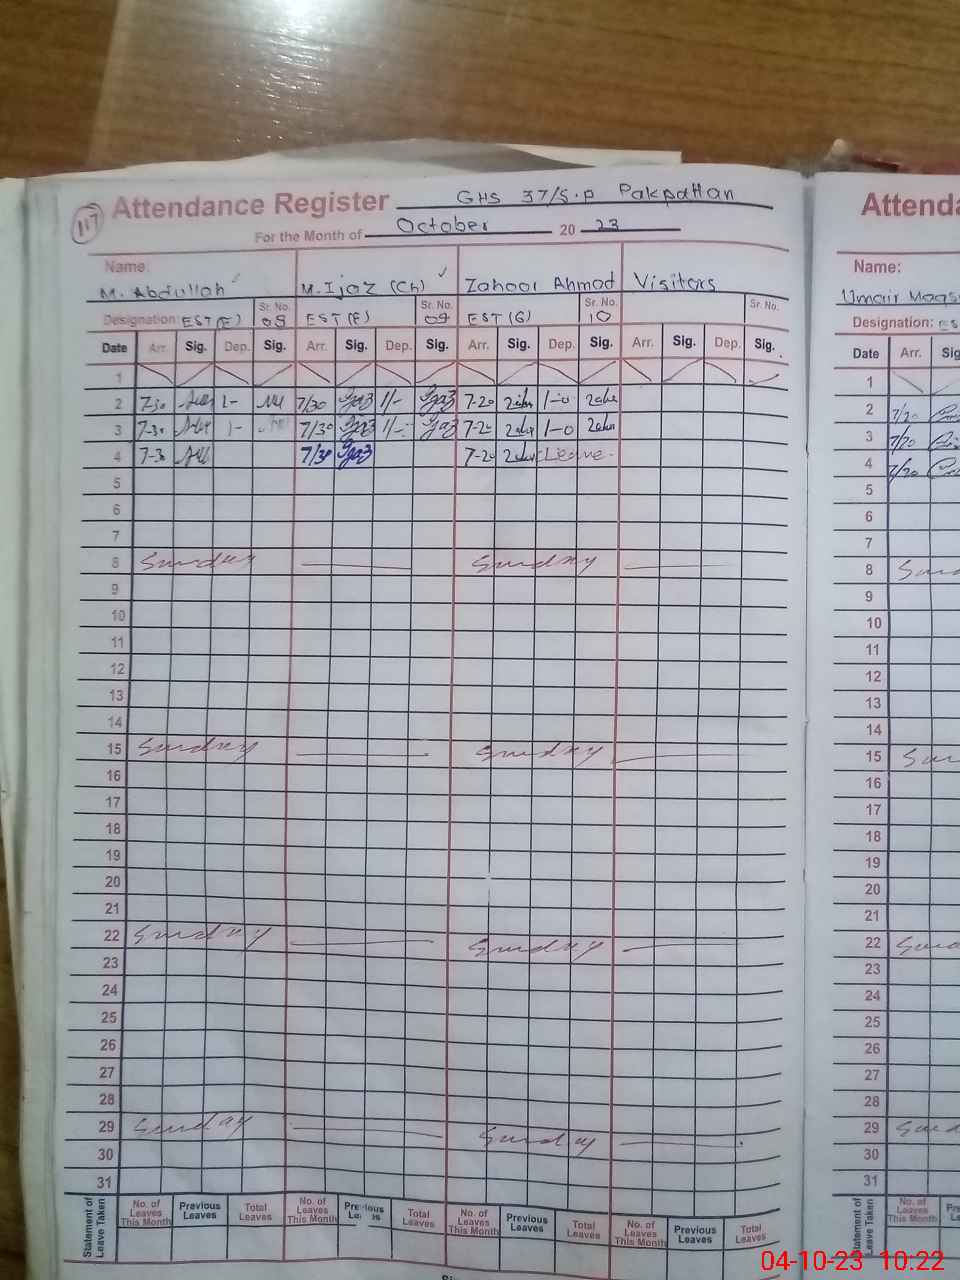 117
Attendance Register GHS 37/S.P Pakpattan
For the Month of October 20 23
Name:
M. Abdullah M. Ijaz (Ch) Zahoor Ahmad Visitors
Designation: EST(E) Sr. No. 08 EST(E) Sr. No. 09 EST(G) Sr. No. 10 Sr. No.
Date Arr. Sig. Dep. Sig. Arr. Sig. Dep. Sig. Arr. Sig. Dep. Sig. Arr. Sig. Dep. Sig.
1
2 7-30 1- 7/30 Ijaz 1/- Ijaz 7-20 1-0
3 7-30 1- 7/30 Ijaz 1/- Ijaz 7-20 1-0
4 7-30 7/30 Ijaz 7-20 Leave
5
6
7
8 Sunday Sunday
9
10
11
12
13
14
15 Sunday Sunday
16
17
18
19
20
21
22 Sunday Sunday
23
24
25
26
27
28
29 Sunday Sunday
30
31
Statement of Leave Taken No. of Leaves This Month Previous Leaves Total Leaves No. of Leaves This Month Previous Leaves Total Leaves No. of Leaves This Month Previous Leaves Total Leaves No. of Leaves This Month Previous Leaves Total Leaves
Attenda
Name:
Umair
Designation:
Date Arr. Sig
1
2 7/20
3 7/20
4 7/20
5
6
7
8
9
10
11
12
13
14
15
16
17
18
19
20
21
22
23
24
25
26
27
28
29
30
31
Statement of Leave Taken No. of Leaves This Month
04-10-23 10:22